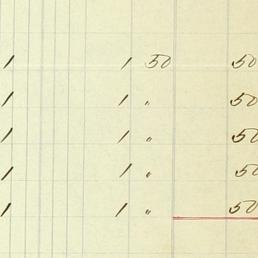 1 1 50 50
1 1 " 50
1 1 " 50
1 1 " 50
1 1 " 50